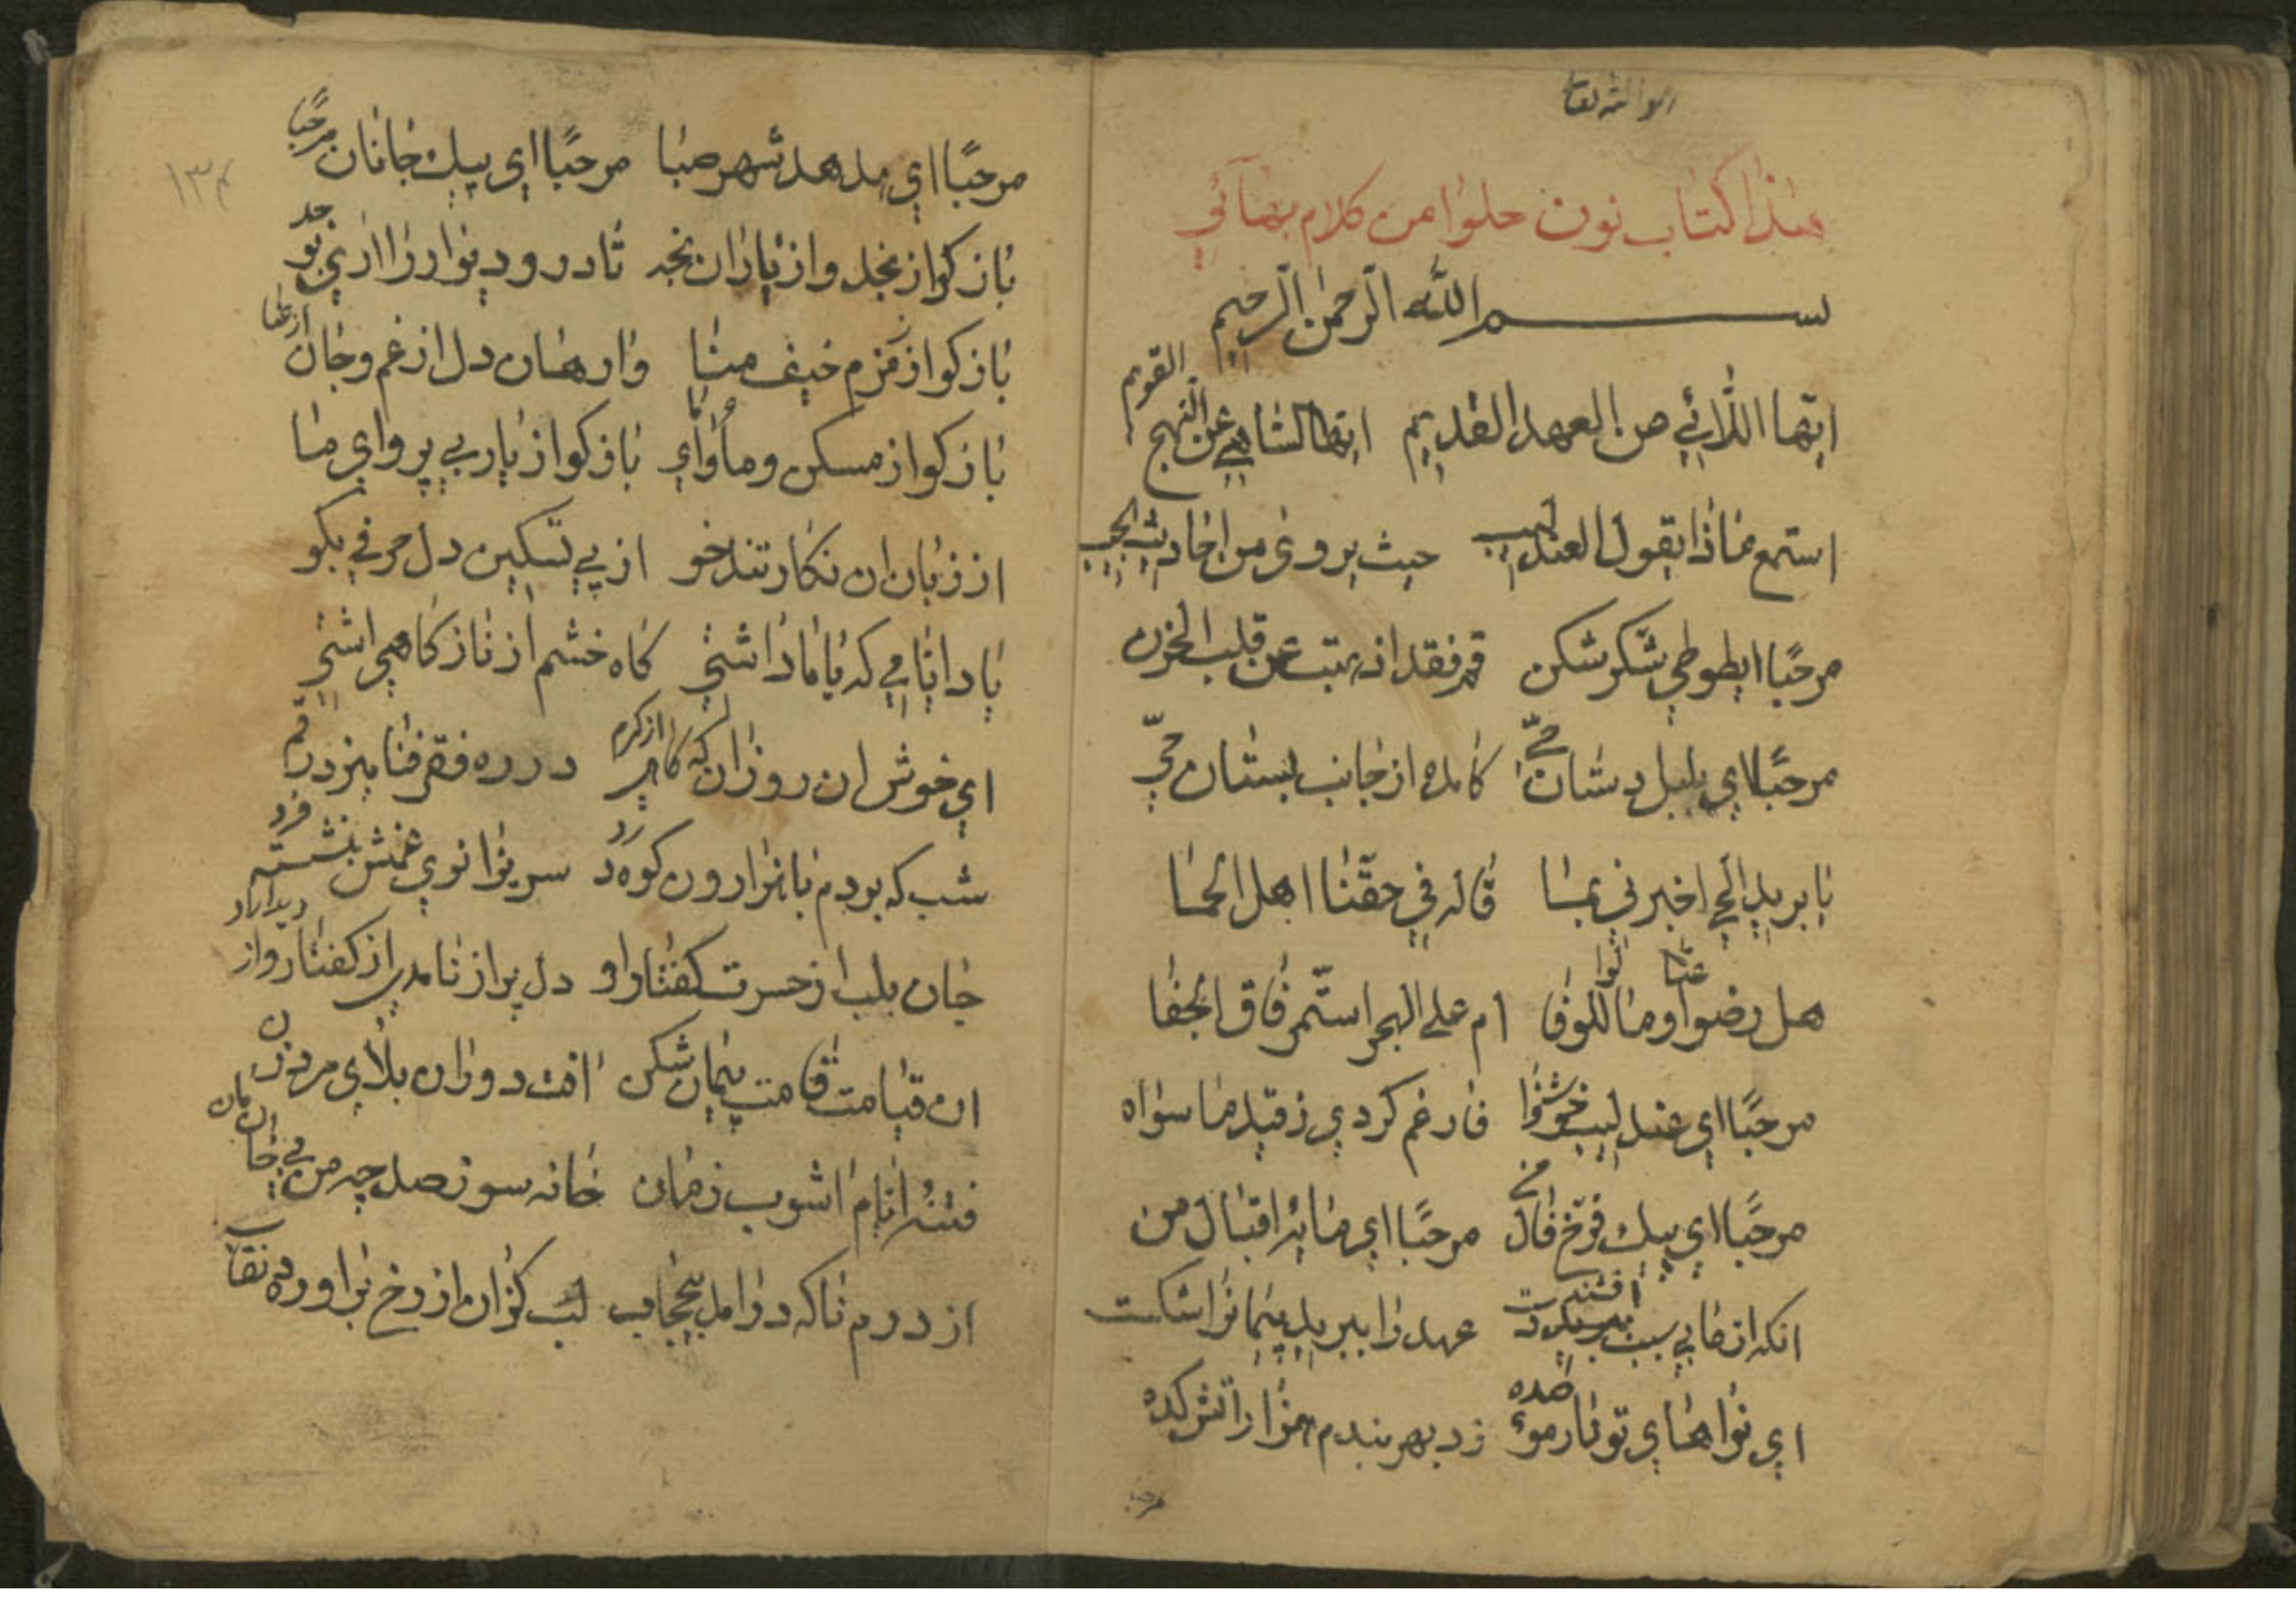 هذا كتاب نون حلوا من كلام بهائي
بسم الله الرحمن الرحيم
ايها اللائي من العهد القديم ايها الساهي عن النهج القويم
استمع ماذا يقول العندليب حيث يروى من احاديث الحبيب
مرحبًا ايطوطي شكر شكن قم فقد اذهبت عن قلب الحزن
مرحبًا اي بلبل دستان حيّ كامده از جانب بستان حيّ
يا بريد الحي اخبرني بما قاله في حقّنا اهل الحما
هل رضوا عنّا ومالوا للوفا ام على الهجر استمّر فاق الجفا
مرحبًا اي عندليب خوشنوا فارغم كردي ز قيد ما سواه
مرحبًا اي پيك فرّخ فال من مرحبًا اي مايهٔ اقبال من
انكه از ما بي سبب افشند دست عهد را ببريد پيمانرا شكست
اي نواهاي تو نار موءصده زد بهر بندم هزار اتشكده
مرحبا
١٣٤
مرحبًا اي هدهد شهر صبا مرحبًا اي پيك جانان مرحبًا
باز كو از نجد و از ياران نجد تا در و ديوار را اري بو جد
باز كو از زمزم خيف منا وارهان دل از غم و جان از عنا
باز كو از مسكن و مأواي ما باز كو از يار بي پرواي ما
از زبان ان نكار تندخو از پي تسكين دل حرفي بكو
ياد ايامي كه با ما داشتي كاه خشم از ناز كاهي اشتي
اي خوش ان روزان كه كاهي از كرم در ره فقر فنا ميزد قدم
شب كه بودم با هزارون كوه درد سر بزانوي غمش بنشسته فرد
جان بلب از حسرت كفتار او دل پر از نامدي از كفتار و از ديدار او
ان قيامت قامت پيمان شكن افت دوران بلاي مرد زن
فتنهٔ ايام اشوب زمان خانه سوز صد چه من بي خان مان
از درم ناكه درامد بيحجاب لب كزان از رخ براورده نقاب